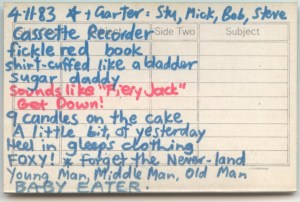 4-11-83 * + Garter: Stu, Mick, Bob, Steve
Side Two Subject
Cassette Recorder
fickle red book
shirt-cuffed like a bladder
sugar daddy
Sounds like "Fiery Jack"
Get Down!
9 candles on the cake
A little bit, of yesterday
Heel in gleeps clothing
FOXY! * forget the Never-land
Young Man, Middle Man, Old Man
BABY EATER.